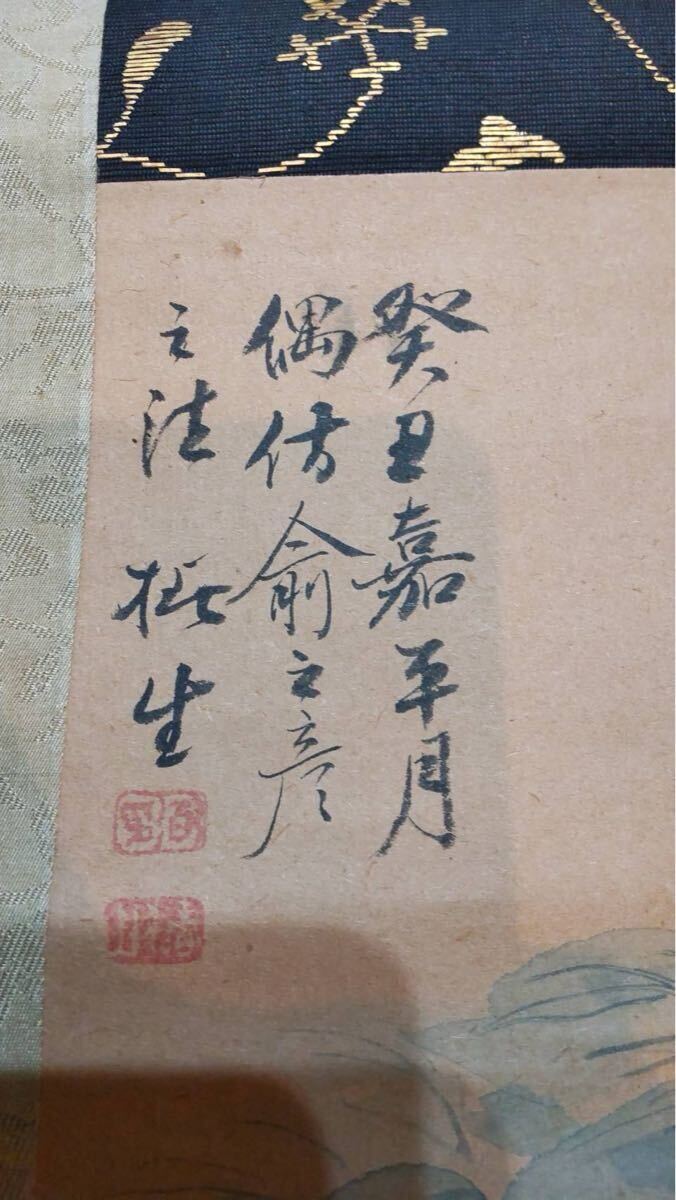 癸丑嘉平月
偶仿俞之彦
之法 椿生